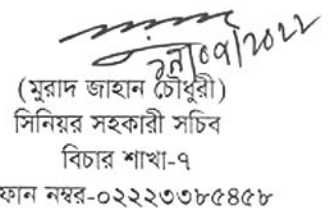 ১৭/০৭/২০২২
(মুরাদ জাহান চৌধুরী)
সিনিয়র সহকারী সচিব
বিচার শাখা-৭
ফোন নম্বর-০২২২৩৩৮৫৪৫৮